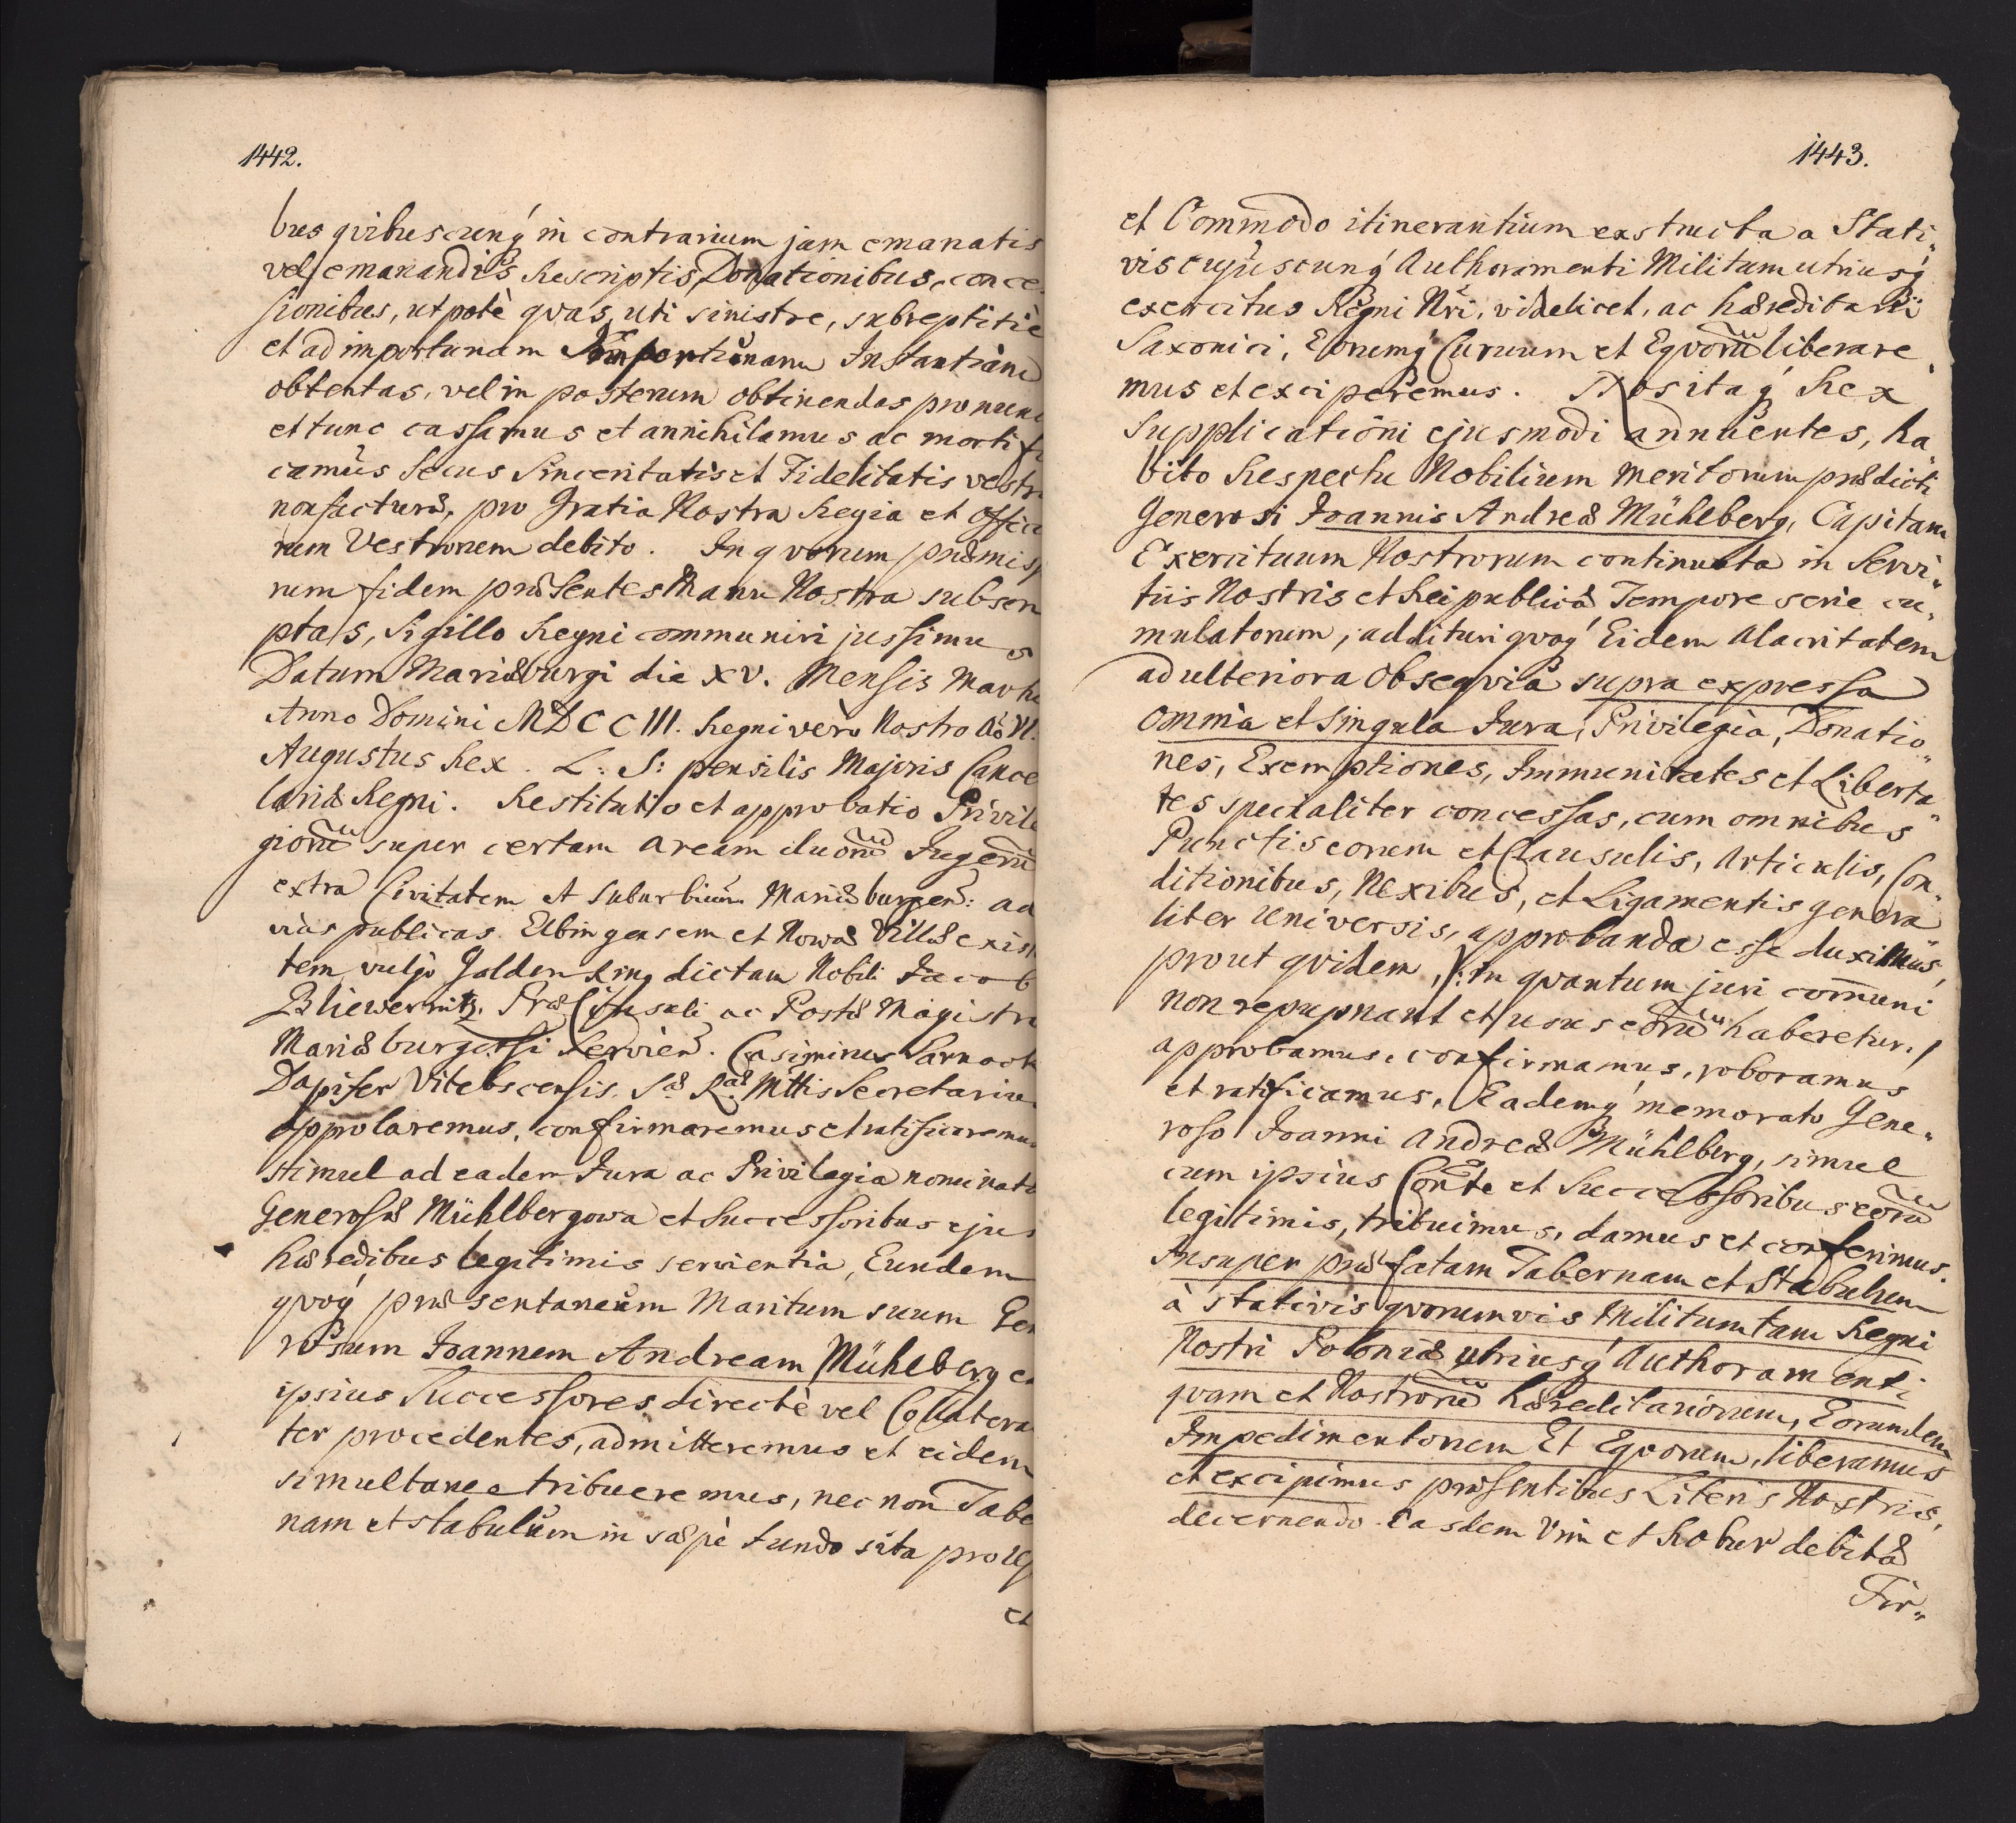 1442.
bus qvibuscunq́ in contrarium jam emanatis
vel emanandis Rescriptis, Donationibus, conce
sionibus, utpotè qvas, uti sinistre, subreptitiè
et ad importunam Instantiam
obtentas, vel in posterum obtinendas pro nunc
et tunc cassamus et annihilamus ac mortifi
camus secus Sinceritatis et Fidelitatis vestr
non facturæ, pro Gratia Nostra Regia et Offici
rum Vestrorum debito. In qvorum præmiss
rum fidem præsentes Manu Nostra subscri
ptas, Sigillo Regni communiri jussimus
Datum Mariæburgi die XV. Mensis Marti
Anno Domini MDCCIII. Regni verò Nostro Aõ VI.
Augustus Rex. L: S: pensilis Majoris Cance
lariæ Regni. Restitutio et approbatio Privile
giorũ super certam Aream duorũ Jugerũ
extra Civitatem et Suburbium Mariæburgen: ad
vias publicas Elbingensem et Nowæ Villæ exist
tem vulgò Golden Ring dictam Nobili Jacob
Bliewernitz, Præ Consuli ac Postæ Magistr
Mariæburgensi Servien. Casimirus Sarnack
Dapifer Vitebscensis, S.æ R.æ Mttis Secretarius
Approbaremus, confirmaremus et ratificaremus
simul ad eadem Jura ac Privilegia nominatæ
Generosæ Mühlbergowa et Successoribus ejus
hæredibus legitimis servientia, Eundem
qvoq́ præsentaneum Maritum suum Gen
rosum Joannem Andream Mühlberg et
ipsius Successores directè vel Collatera
ter procedentes, admitteremus et eidem
simultanee tribueremus, nec non Tabe
nam et stabulum in sæpè fundo sita pro us
et
1443.
et Commodo itinerantium exstructa a Stati„
vis cujuscunq́ Authoramenti Militum utriusq́
exercitus Regni Nr̃i, videlicet, ac hæreditarii
Saxonici, Eorumq́ Curuum et Eqvorũ liberare„
mus et exciperemus. Nos itaq́ Rex
Supplicationi ejusmodi annuentes, ha„
bito Respectu Nobilium Meritorum prædicti
Generosi Joannis Andreæ Mühlberg, Capitani
Exercituum Nostrorum continuata in Servi„
tiis Nostris et Reipublicæ Tempore serie cu„
mulatorum, addituri qvoq́ Eidem Alacritatem
ad ulteriora Obseqvia supra expressa
Omnia et singula Jura, Privilegia, Donatio„
nes, Exemptiones, Immunitates et Liberta„
tes specialiter concessas, cum omnibus
Punctis eorum et Clausulis, Articulis, Con„
ditionibus, Nexibus, et Ligamentis genera„
liter Universis, approbanda esse duximus,
prout qvidem, /: in qvantum juri com̄uni
non repugnant et usus eorũ haberetur, /
approbamus, confirmamus, roboramus
et ratificamus, Eademq́ memorato Gene„
roso Joanni Andreæ Mühlberg, simul
cum ipsius Con̄te et Successoribus eorũ
legitimis, tribuimus, damus et conferimus.
Insuper præfatam Tabernam et Stabulum
à stativis qvorumvis Militum tam Regni
Nostri Poloniæ utriusq́ Authoramenti
qvam et Nostrorũ hæreditariorum, Eorundem
Impedimentorum Et Eqvorum, liberamus
et excipimus præsentibus Literis Nostris,
decernendo easdem Vim et Robur debitæ
Fir„